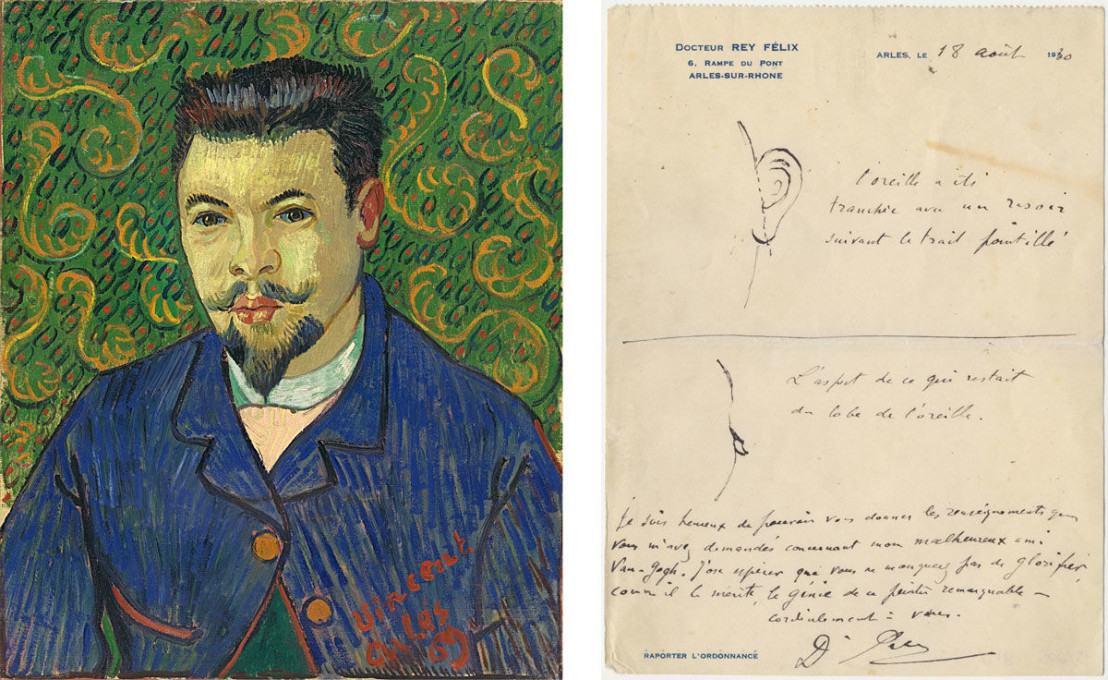 Vincent
Arles
89
DOCTEUR REY FÉLIX
6, RAMPE DU PONT
ARLES-SUR-RHONE
ARLES, LE 18 août 1930
l'oreille a été
tranchée avec un rasoir
suivant le trait pointillé
L'aspect de ce qui restait
du lobe de l'oreille.
Je suis heureux de pouvoir vous donner les renseignements que
vous m'avez demandés concernant mon malheureux ami
Van-Gogh. J'ose espérer que vous ne manquerez pas de glorifier,
comme il le mérite, le génie de ce peintre remarquable —
cordialement à vous.
Dr Rey
RAPORTER L'ORDONNANCE